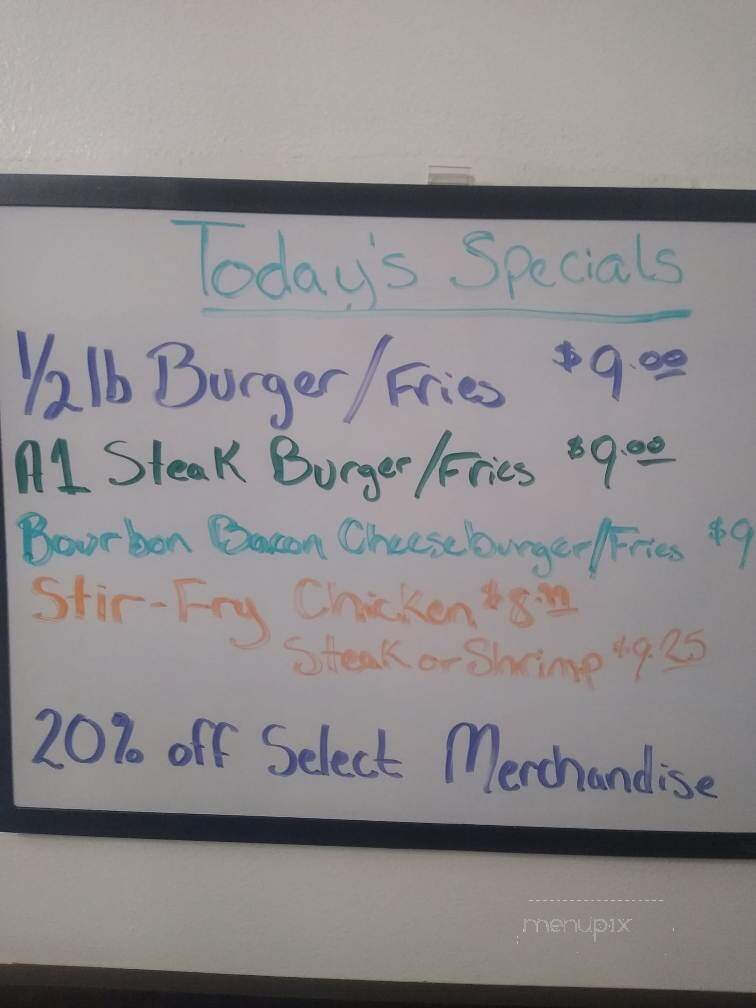 Today's Specials
1/2 lb Burger/Fries $9.00
A1 Steak Burger/Fries $9.00
Bourbon Bacon Cheeseburger/Fries $9
Stir-Fry Chicken $8.99
Steak or Shrimp $9.25
20% off Select Merchandise
menupix